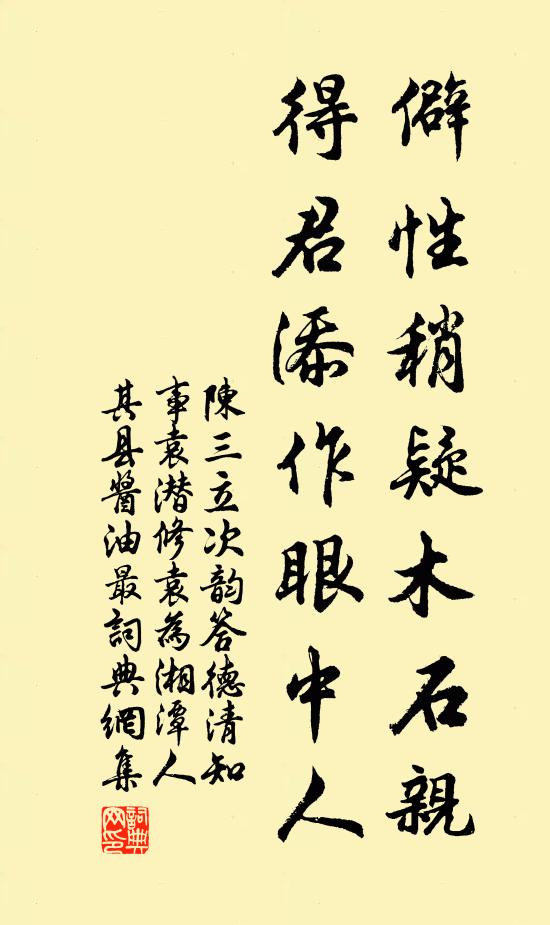 僻性稍疑木石親
得君添作眼中人
陳三立次韵答德清知
事袁潜修袁為湘潭人
其县醬油最詞典網集
詞典
网印